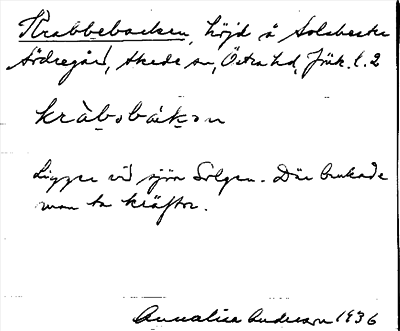 Krabbebacken, höjd å Solaberke
Södregård, Skede sn, Östra hd, Jönk. l. 2
kràbəbàkən
Ligger vid sjön Solgen. Där brukade
man ta kräftor.
Annalisa Anderson 1936